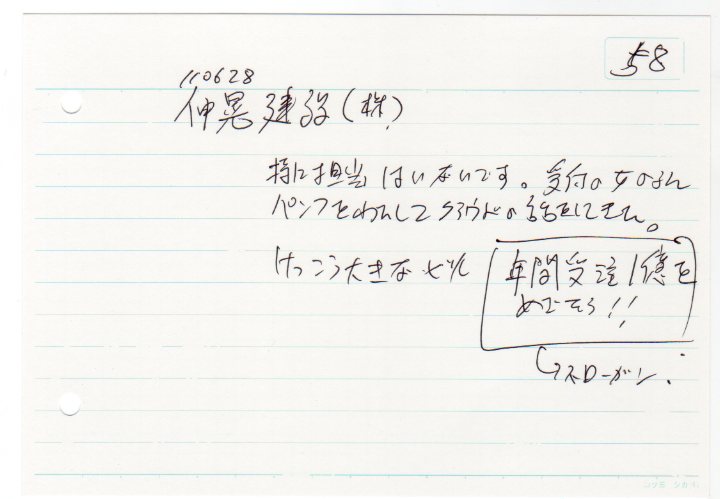 58
110628
仲晃建設(株)
特に担当はいないです。受付の女の
パンフをわたして クラウドの話をしてません。
けっこう大きなビル
年間受注1億を
めざそう!!
スローガン.